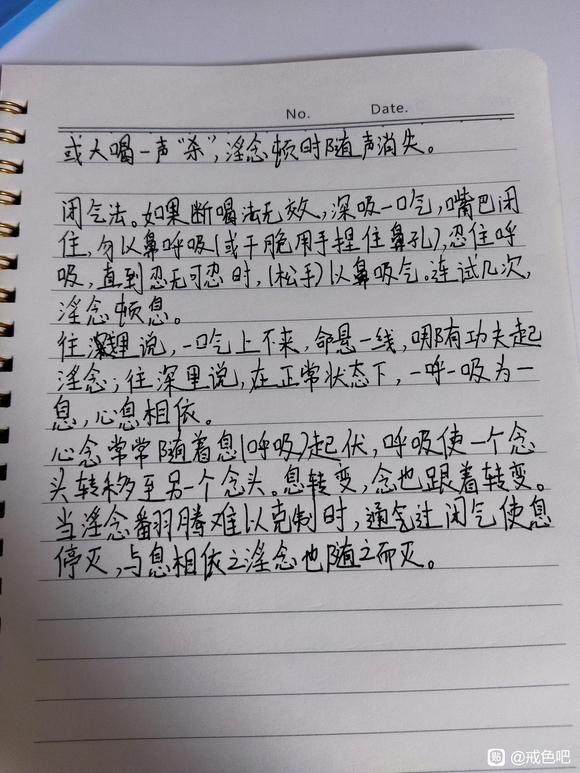 No. Date.
或大喝一声“杀”,淫念顿时随声消失。
闭气法。如果断喝法无效,深吸一口气,嘴巴闭
住,勿以鼻呼吸(或干脆用手捏住鼻孔),忍住呼
吸,直到忍无可忍时,(松手)以鼻吸气。连试几次,
淫念顿息。
往里说,一口气上不来,命悬一线,哪有功夫起
淫念;往深里说,在正常状态下,一呼一吸为一
息,心息相依。
心念常常随着息(呼吸)起伏,呼吸使一个念
头转移至另一个念头。息转变,念也跟着转变。
当淫念翻腾难以克制时,通过闭气使息
停灭,与息相依之淫念也随之而灭。
贴 @戒色吧